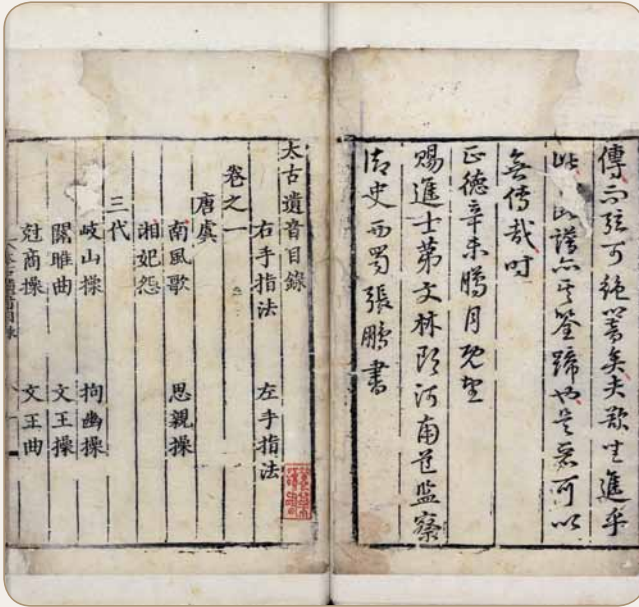 傳而弦可絕響矣夫生進乎
此譜亦其筌蹄也是惡可以
無傳哉时
正德辛未臘月既望
賜進士第文林郎河南道監察
御史西蜀張鵬書
太古遺音目錄
右手指法 左手指法
卷之一
唐虞
南風歌 思親操
湘妃怨
三代
岐山操 拘幽操
關雎曲 文王操
尅商操 文王曲